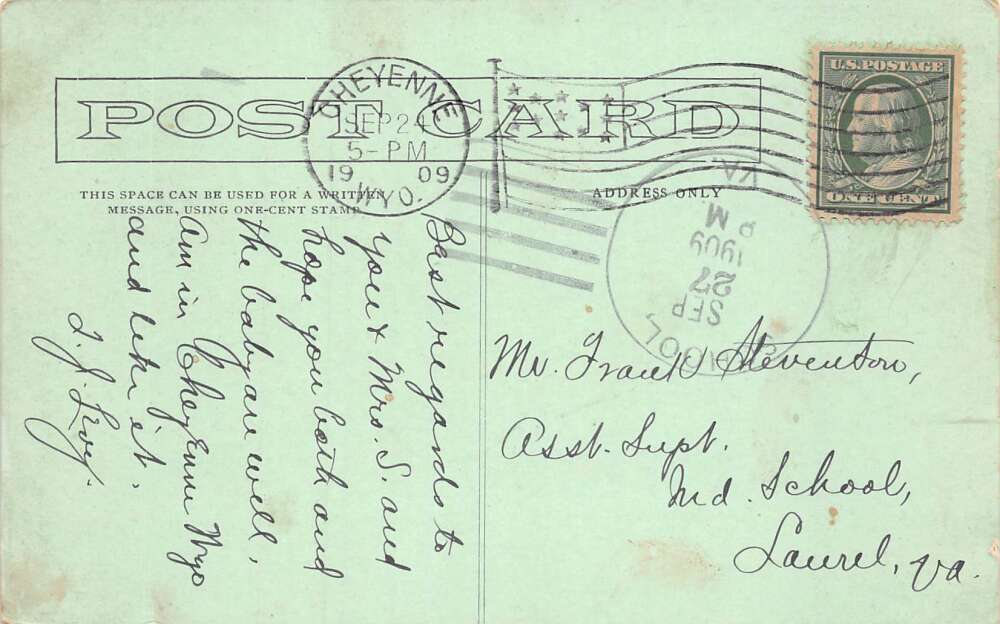 POST CARD
THIS SPACE CAN BE USED FOR A WRITTEN
MESSAGE, USING ONE-CENT STAMP
ADDRESS ONLY
CHEYENNE
SEP 24
5-PM
1909
WYO.
U.S. POSTAGE
ONE CENT
SEP
27
P M
1909
VA
Best regards to
you & Mrs. S. and
hope you both and
the baby are well,
Am in Cheyenne Wyo
and like it.
Mr. Frank Steventon,
Asst. Supt.
Md. School,
Laurel, Va.